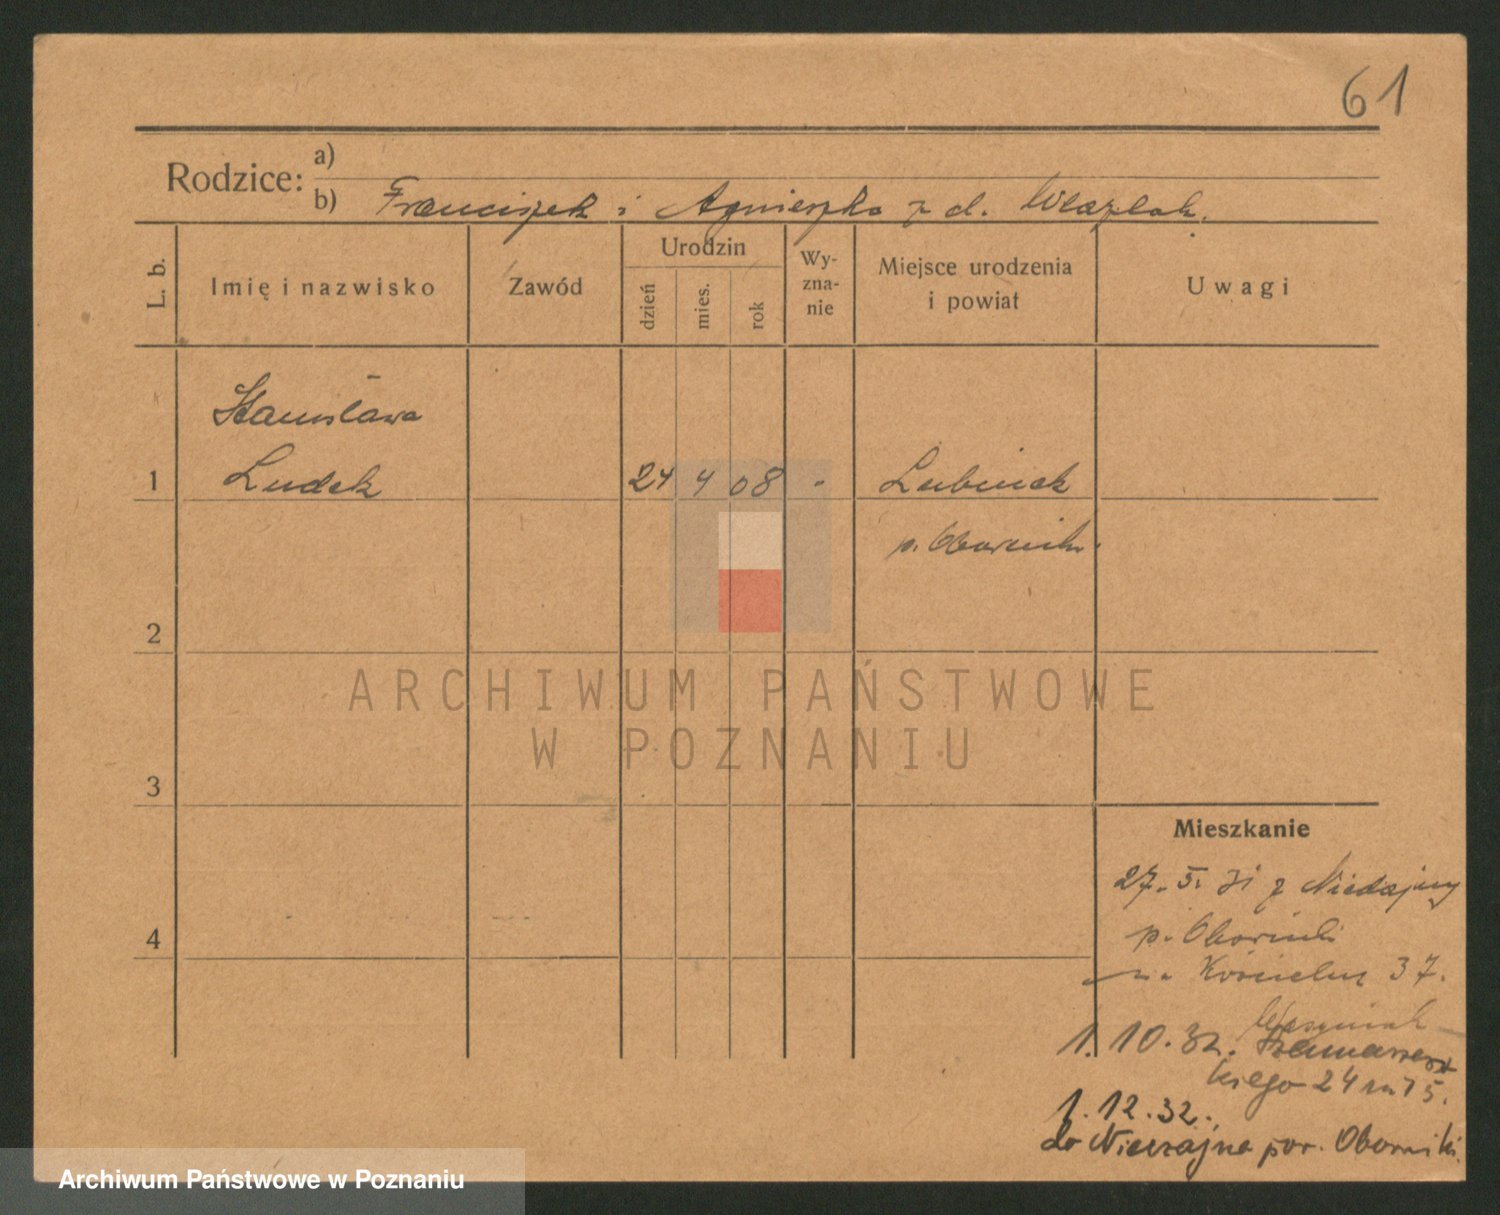 61
Rodzice:
a)
b) Franciszek i Agnieszka z d.
L. b.
Imię i nazwisko
Zawód
Urodzin
dzień
mies.
rok
Wy-
zna-
nie
Miejsce urodzenia
i powiat
Uwagi
Stanisława
1 Ludek 24 4 08 Lubiniek
p. Oborniki
2
3
4
Mieszkanie
27. 5. 31 z
p. Oborniki
37.
1. 10. 32.
kiego 24 m 15.
1. 12. 32.
do pow. Oborniki.
ARCHIWUM PAŃSTWOWE
W POZNANIU
Archiwum Państwowe w Poznaniu